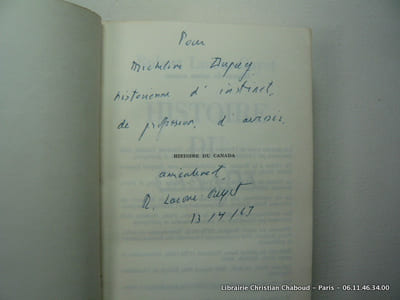 Pour
Micheline Dupuy,
historienne d'instinct,
de profession,
HISTOIRE DU CANADA
amicalement,
R. Lacour-Gayet
13/4/67
Librairie Christian Chaboud - Paris - 06.11.46.34.00